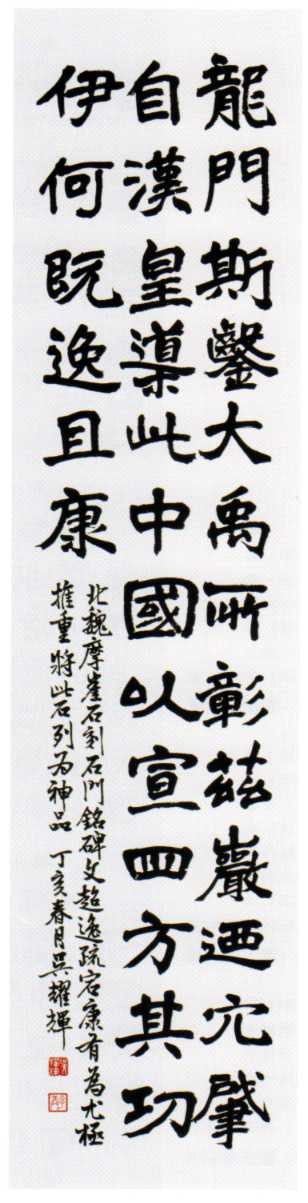 龍門斯鑿大禹所彰茲巖迺穴肇
自漢皇導此中國以宣四方其功
伊何既逸且康
北魏摩崖石刻石門銘碑文超逸疏宕康有為尤極
推重將此石列為神品 丁亥春月吳耀輝